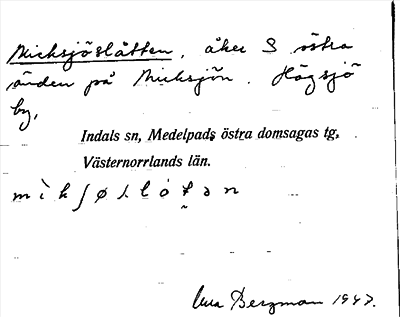 Micksjöslåtten, åker S östra
änden på Micksjön. Högsjö
by,
Indals sn, Medelpads östra domsagas tg,
Västernorrlands län.
Bergman 1947.